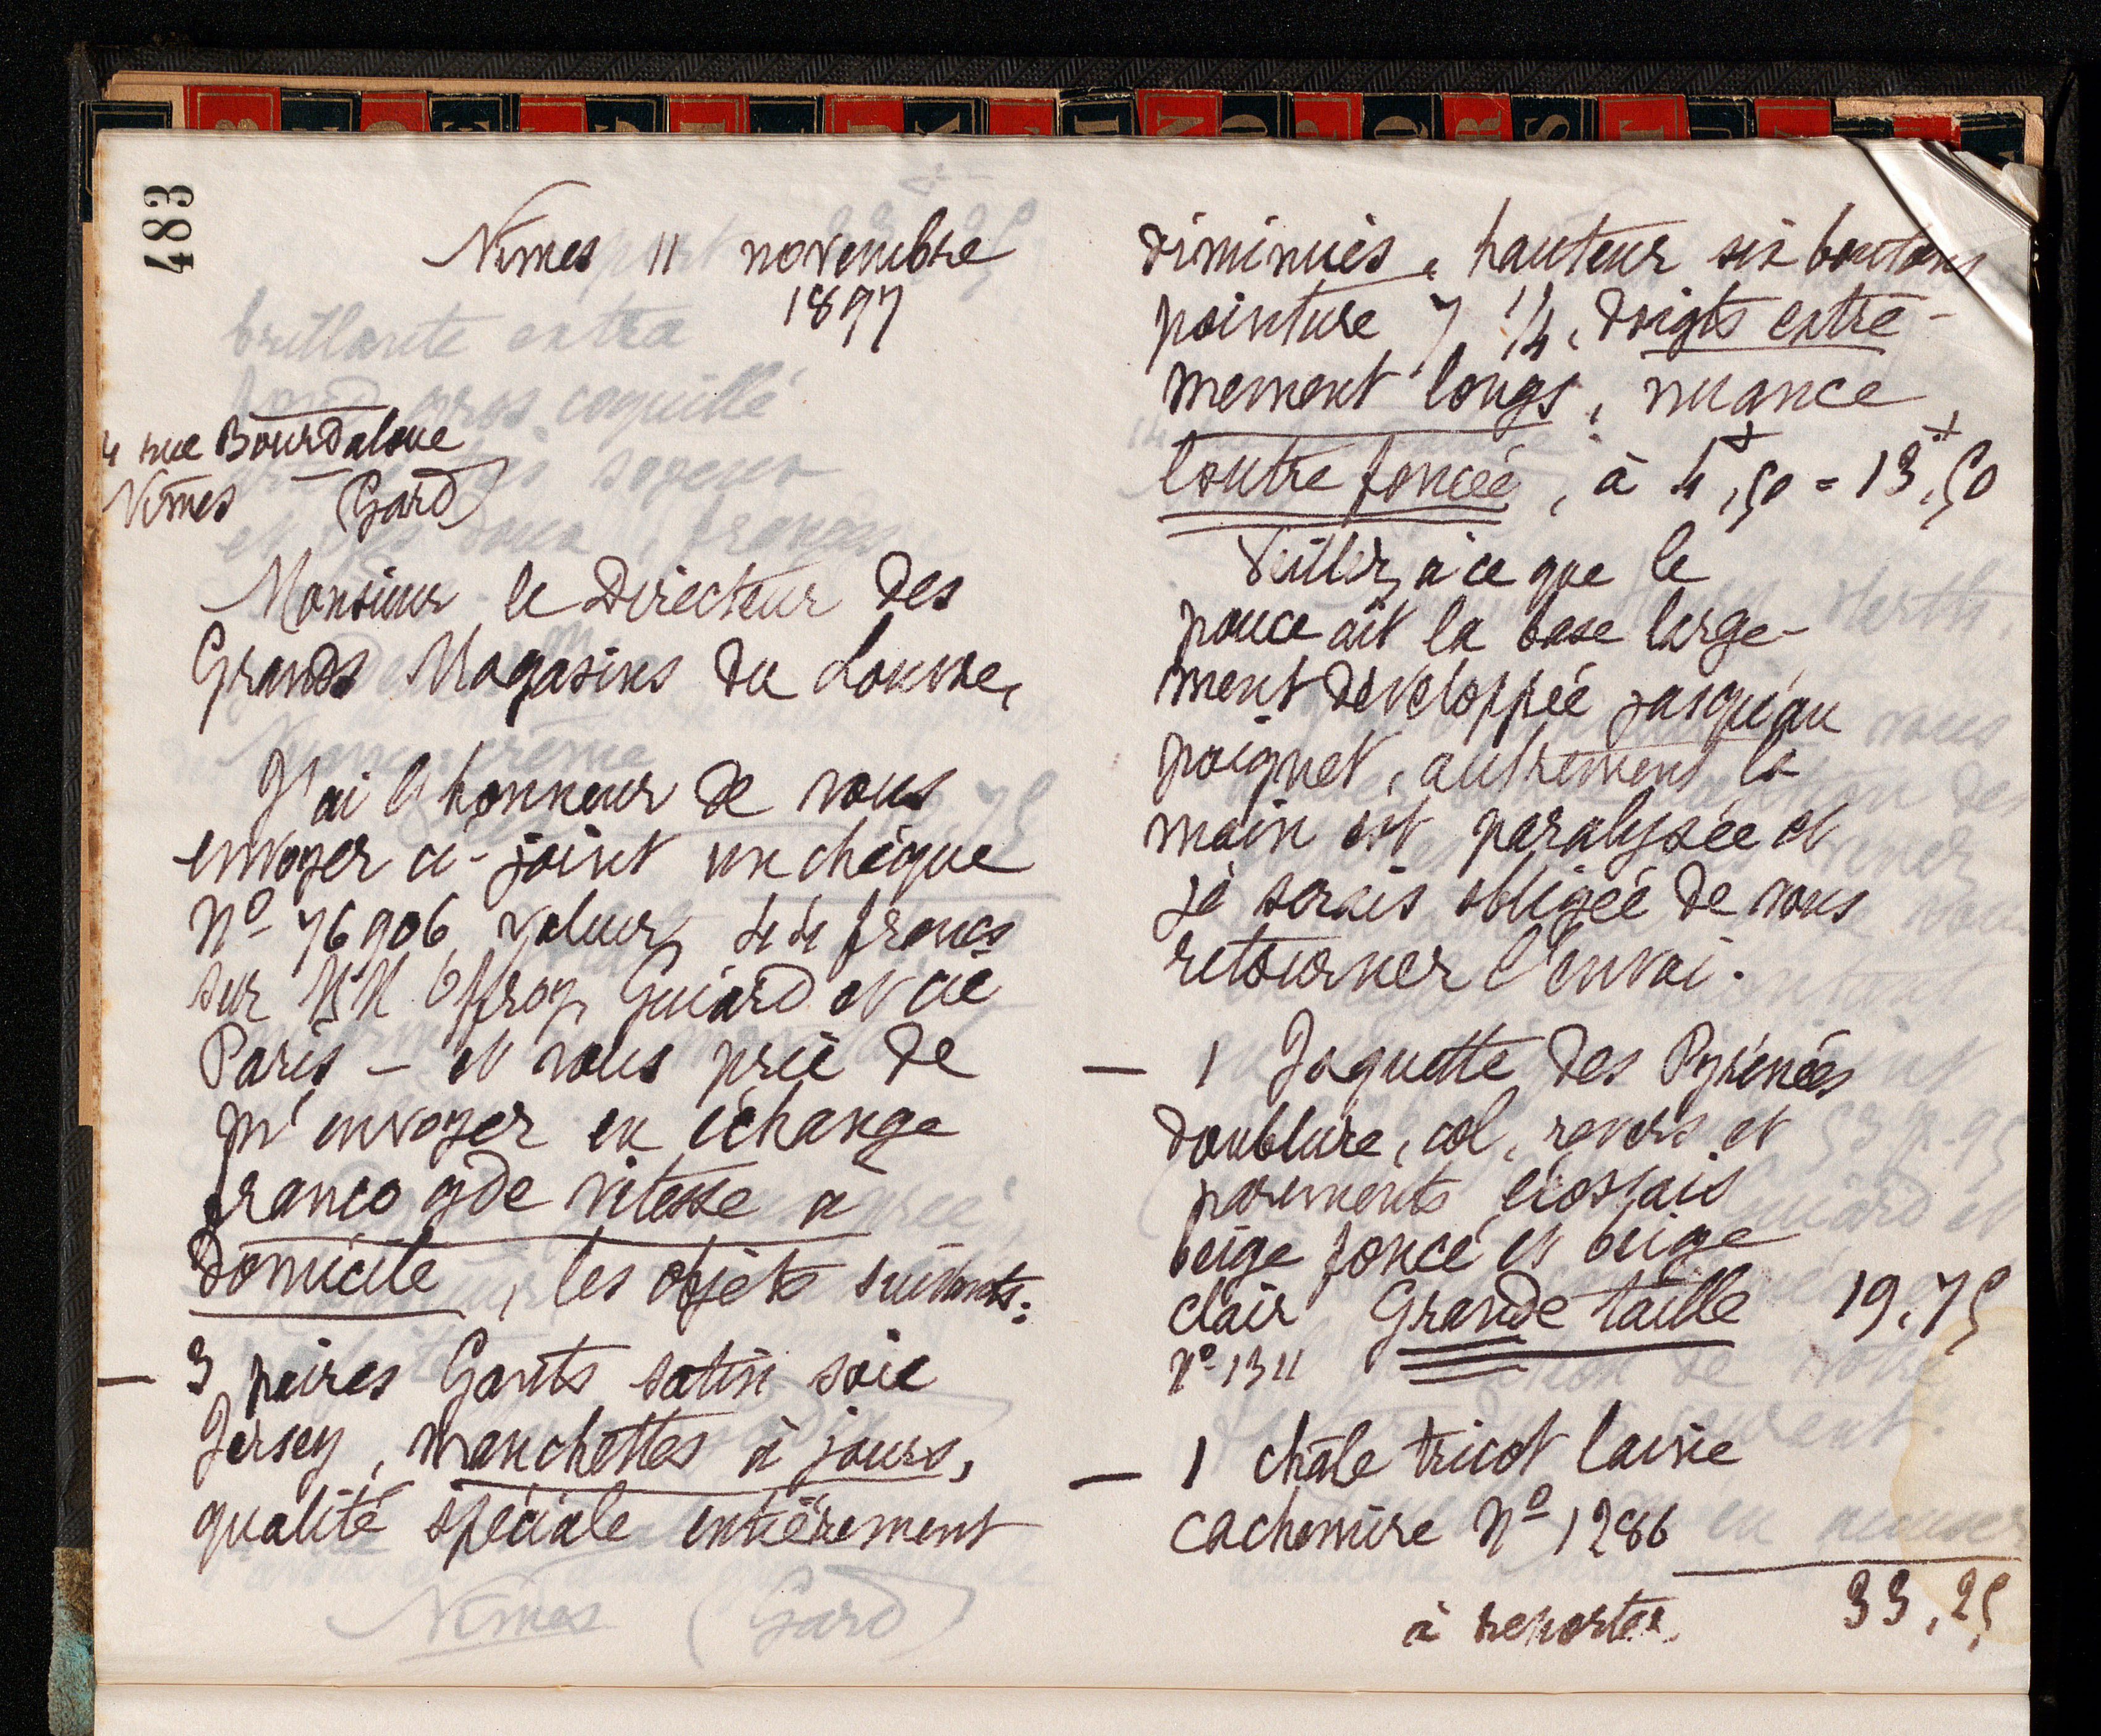 483
Nîmes 11 novembre
1897
4 rue Bourdaloue
Nîmes Gard
Monsieur le Directeur des
Grands Magasins du Louvre,
J'ai l'honneur de vous
envoyer ci-joint un chèque
No 76906 valeur 44 francs
sur MM Offroy Guiard et Cie
Paris - et vous prie de
m'envoyer en échange
franco gde vitesse à
domicile, les objets suivants:
- 3 paires Gants satin soie
Jersey, manchettes à jours,
qualité spéciale entièrement
diminués, hauteur six boutons
pointure 7 1/4, doigts extrê-
mement longs, nuance
loutre foncée, à 4,50 = 13,50
Veillez à ce que le
pouce ait la base large-
ment développée jusqu'au
poignet, autrement la
main est paralysée et
je serais obligée de vous
retourner l'envoi.
- 1 Jaquette des Pyrénées
doublure, col, revers et
parements écossais
beige foncé et beige
clair Grande taille 19,75
No 1311
- 1 châle tricot laine
cachemire No 1286
à reporter. 33,25